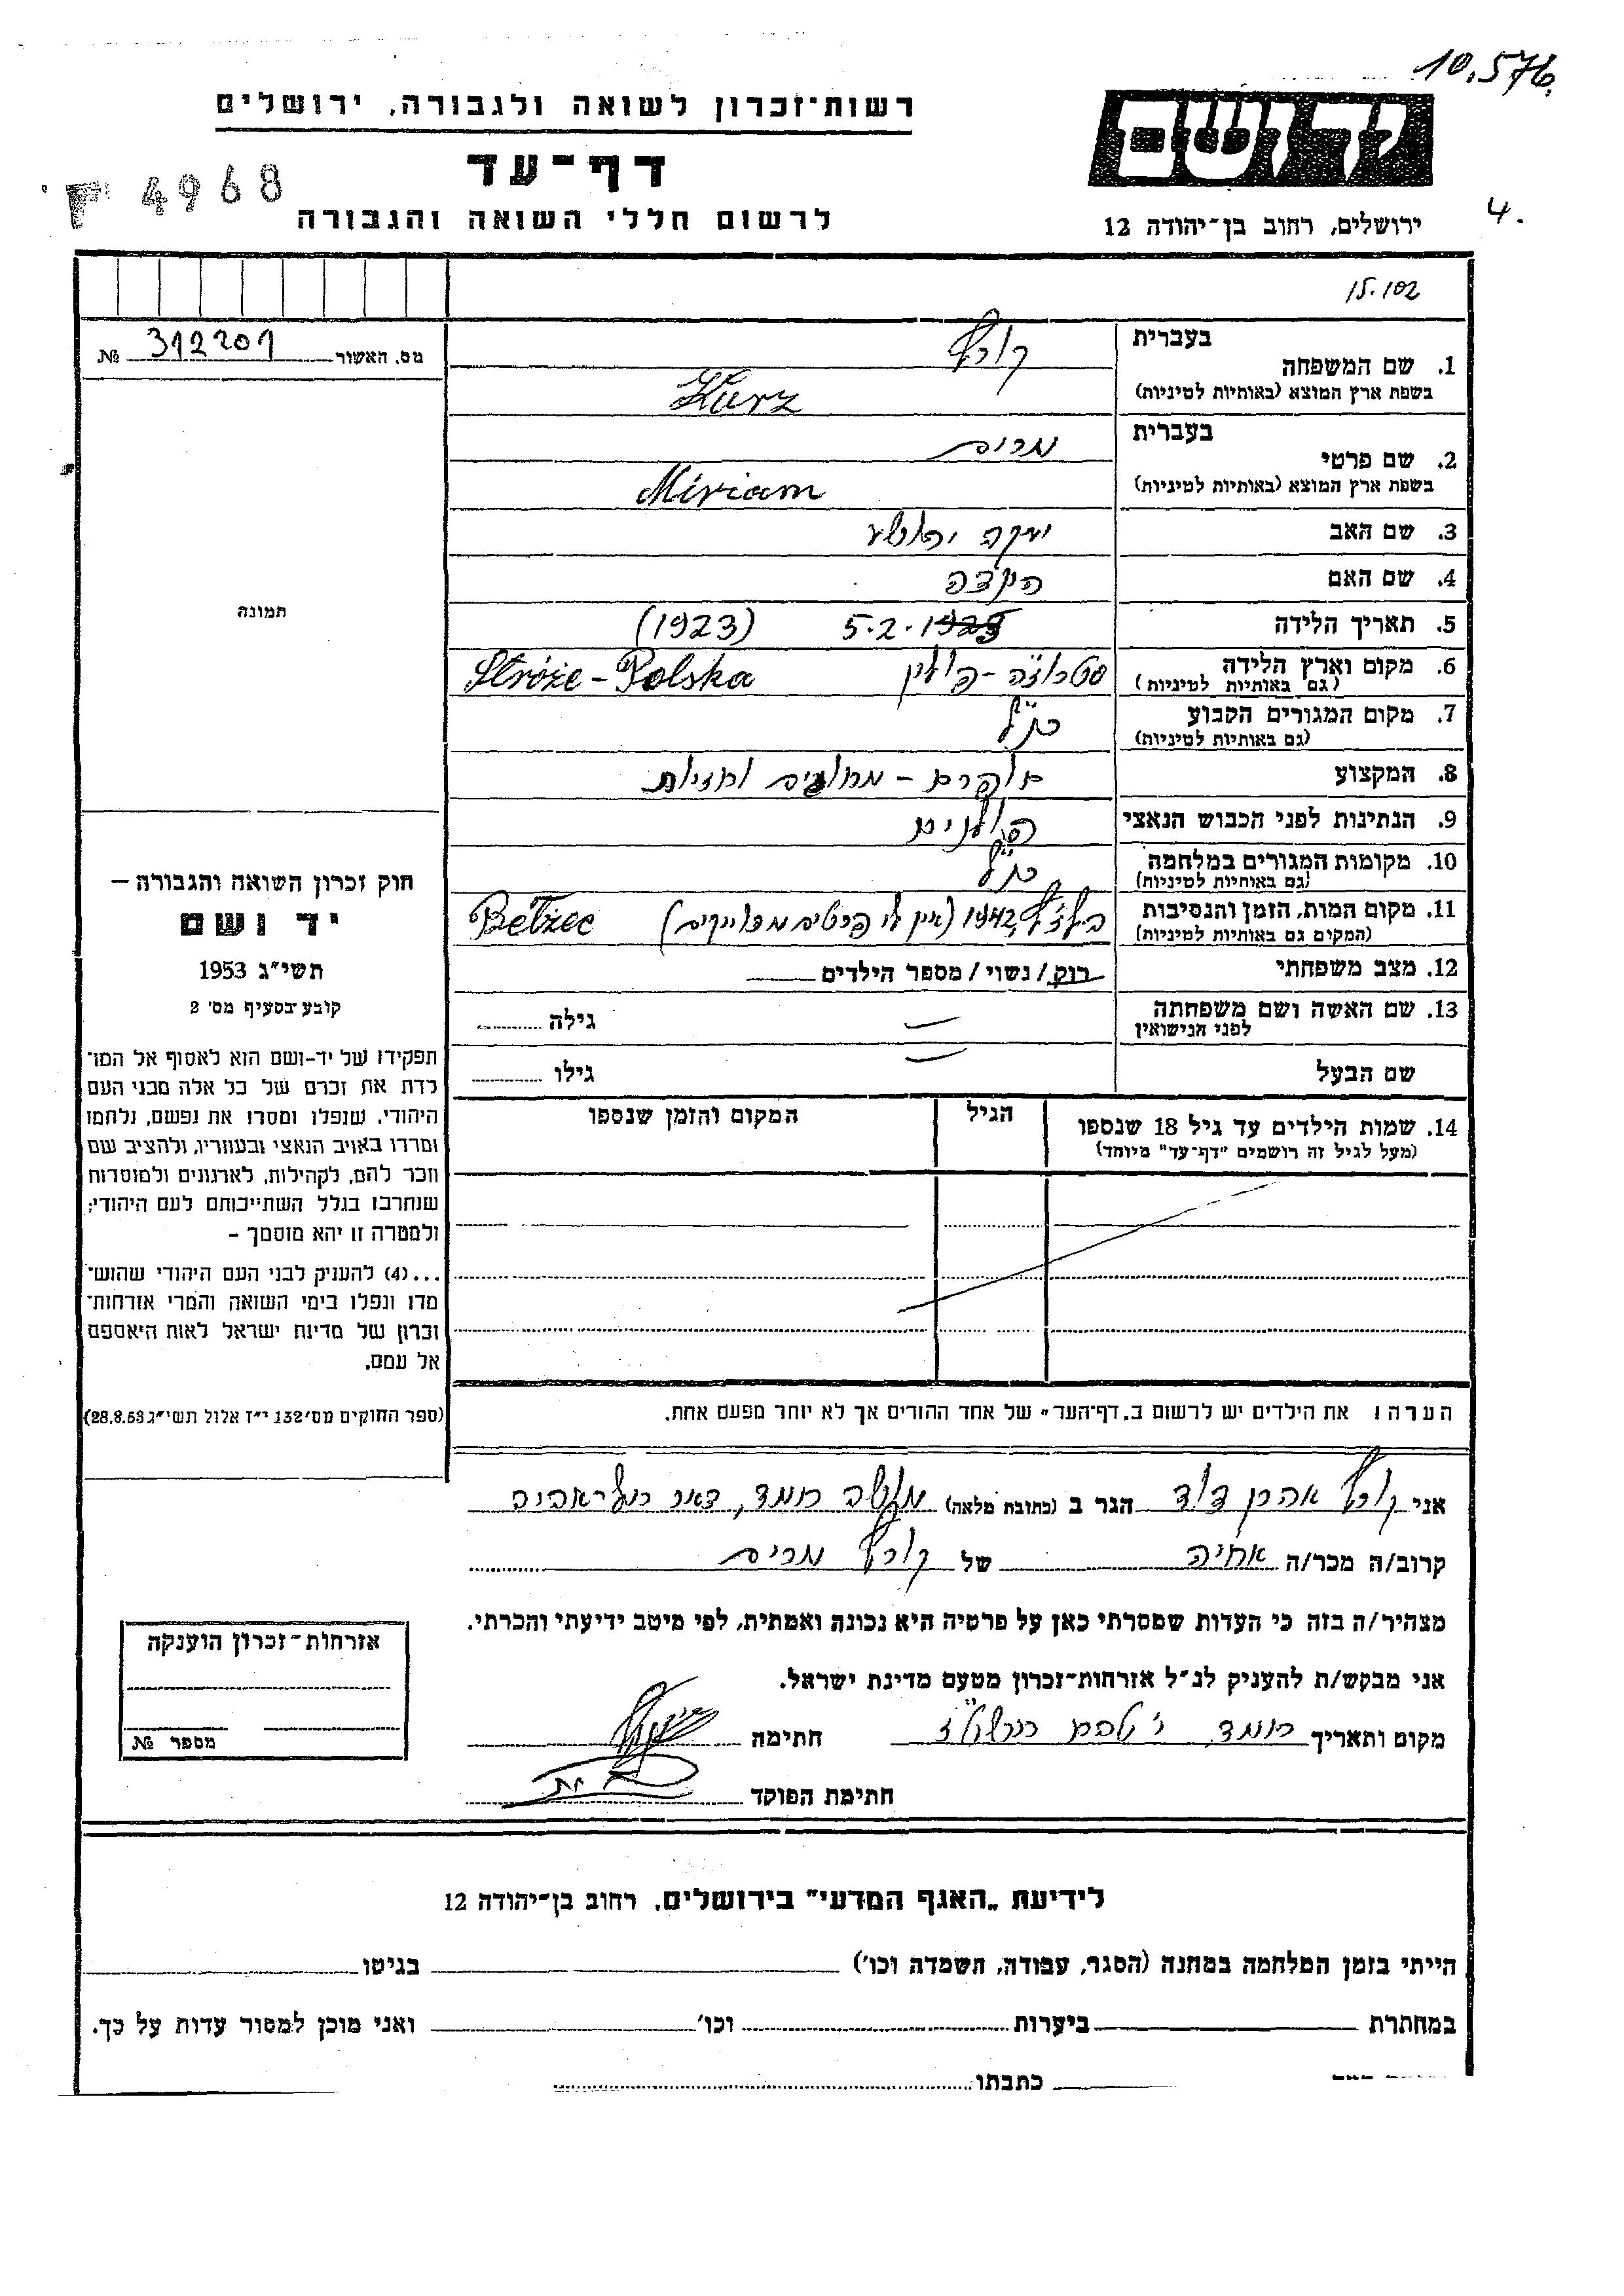 10.576.
רשות-זכרון לשואה ולגבורה, ירושלים
יד ושם
דף-עד
4968
לרשום חללי השואה והגבורה
ירושלים, רחוב בן-יהודה 12
4.
15.102
מס. האשור 312201 №
בעברית
1. שם המשפחה קורץ
בשפת ארץ המוצא (באותיות לטיניות) Kurz
בעברית
2. שם פרטי מרים
בשפת ארץ המוצא (באותיות לטיניות) Miriam
3. שם האב יהושע
4. שם האם הינדה
5. תאריך הלידה 5.2.1923 (1923)
6. מקום וארץ הלידה סטרוז'ה - פולין Stróże - Polska
(גם באותיות לטיניות)
7. מקום המגורים הקבוע כנ"ל
(גם באותיות לטיניות)
8. המקצוע
9. הנתינות לפני הכבוש הנאצי פולנית
10. מקומות המגורים במלחמה כנ"ל
(גם באותיות לטיניות)
11. מקום המות, הזמן והנסיבות בלז'ץ, 1942 (אין לי פרטים מדוייקים) Bełżec
(המקום גם באותיות לטיניות)
12. מצב משפחתי רוק / נשוי / מספר הילדים
13. שם האשה ושם משפחתה גילה
לפני הנישואין
שם הבעל גילו
14. שמות הילדים עד גיל 18 שנספו הגיל המקום והזמן שנספו
(מעל לגיל זה רושמים "דף-עד" מיוחד)
הערה: את הילדים יש לרשום ב"דף-העד" של אחד ההורים אך לא יותר מפעם אחת.
תמונה
חוק זכרון השואה והגבורה –
יד ושם
תשי"ג 1953
קובע בסעיף מס' 2
תפקידו של יד-ושם הוא לאסוף אל המו־
לדת את זכרם של כל אלה מבני העם
היהודי, שנפלו ומסרו את נפשם, נלחמו
ומרדו באויב הנאצי ובעוזריו, ולהציב שם
וזכר להם, לקהילות, לארגונים ולמוסדות
שנחרבו בגלל השתייכותם לעם היהודי;
ולמטרה זו יהא מוסמך –
...(4) להעניק לבני העם היהודי שהוש־
מדו ונפלו בימי השואה והמרי אזרחות־
זכרון של מדינת ישראל לאות היאספם
אל עמם.
(ספר החוקים מס' 132 י"ז אלול תשי"ג 28.8.53)
אני קורץ אהרן דוד הגר ב (כתובת מלאה) מושב חמד, דאר תל-אביב
קרוב/ה מכר/ה אחיה של קורץ מרים
מצהיר/ה בזה כי העדות שמסרתי כאן על פרטיה היא נכונה ואמתית, לפי מיטב ידיעתי והכרתי.
אני מבקש/ת להעניק לנ"ל אזרחות-זכרון מטעם מדינת ישראל.
מקום ותאריך חמד, חתימה
חתימת הפוקד
אזרחות-זכרון הוענקה
מספר №
לידיעת "האגף המדעי" בירושלים, רחוב בן-יהודה 12
הייתי בזמן המלחמה במחנה (הסגר, עבודה, השמדה וכו') בגיטו
במחתרת ביערות וכו' ואני מוכן למסור עדות על כך.
כתבתו